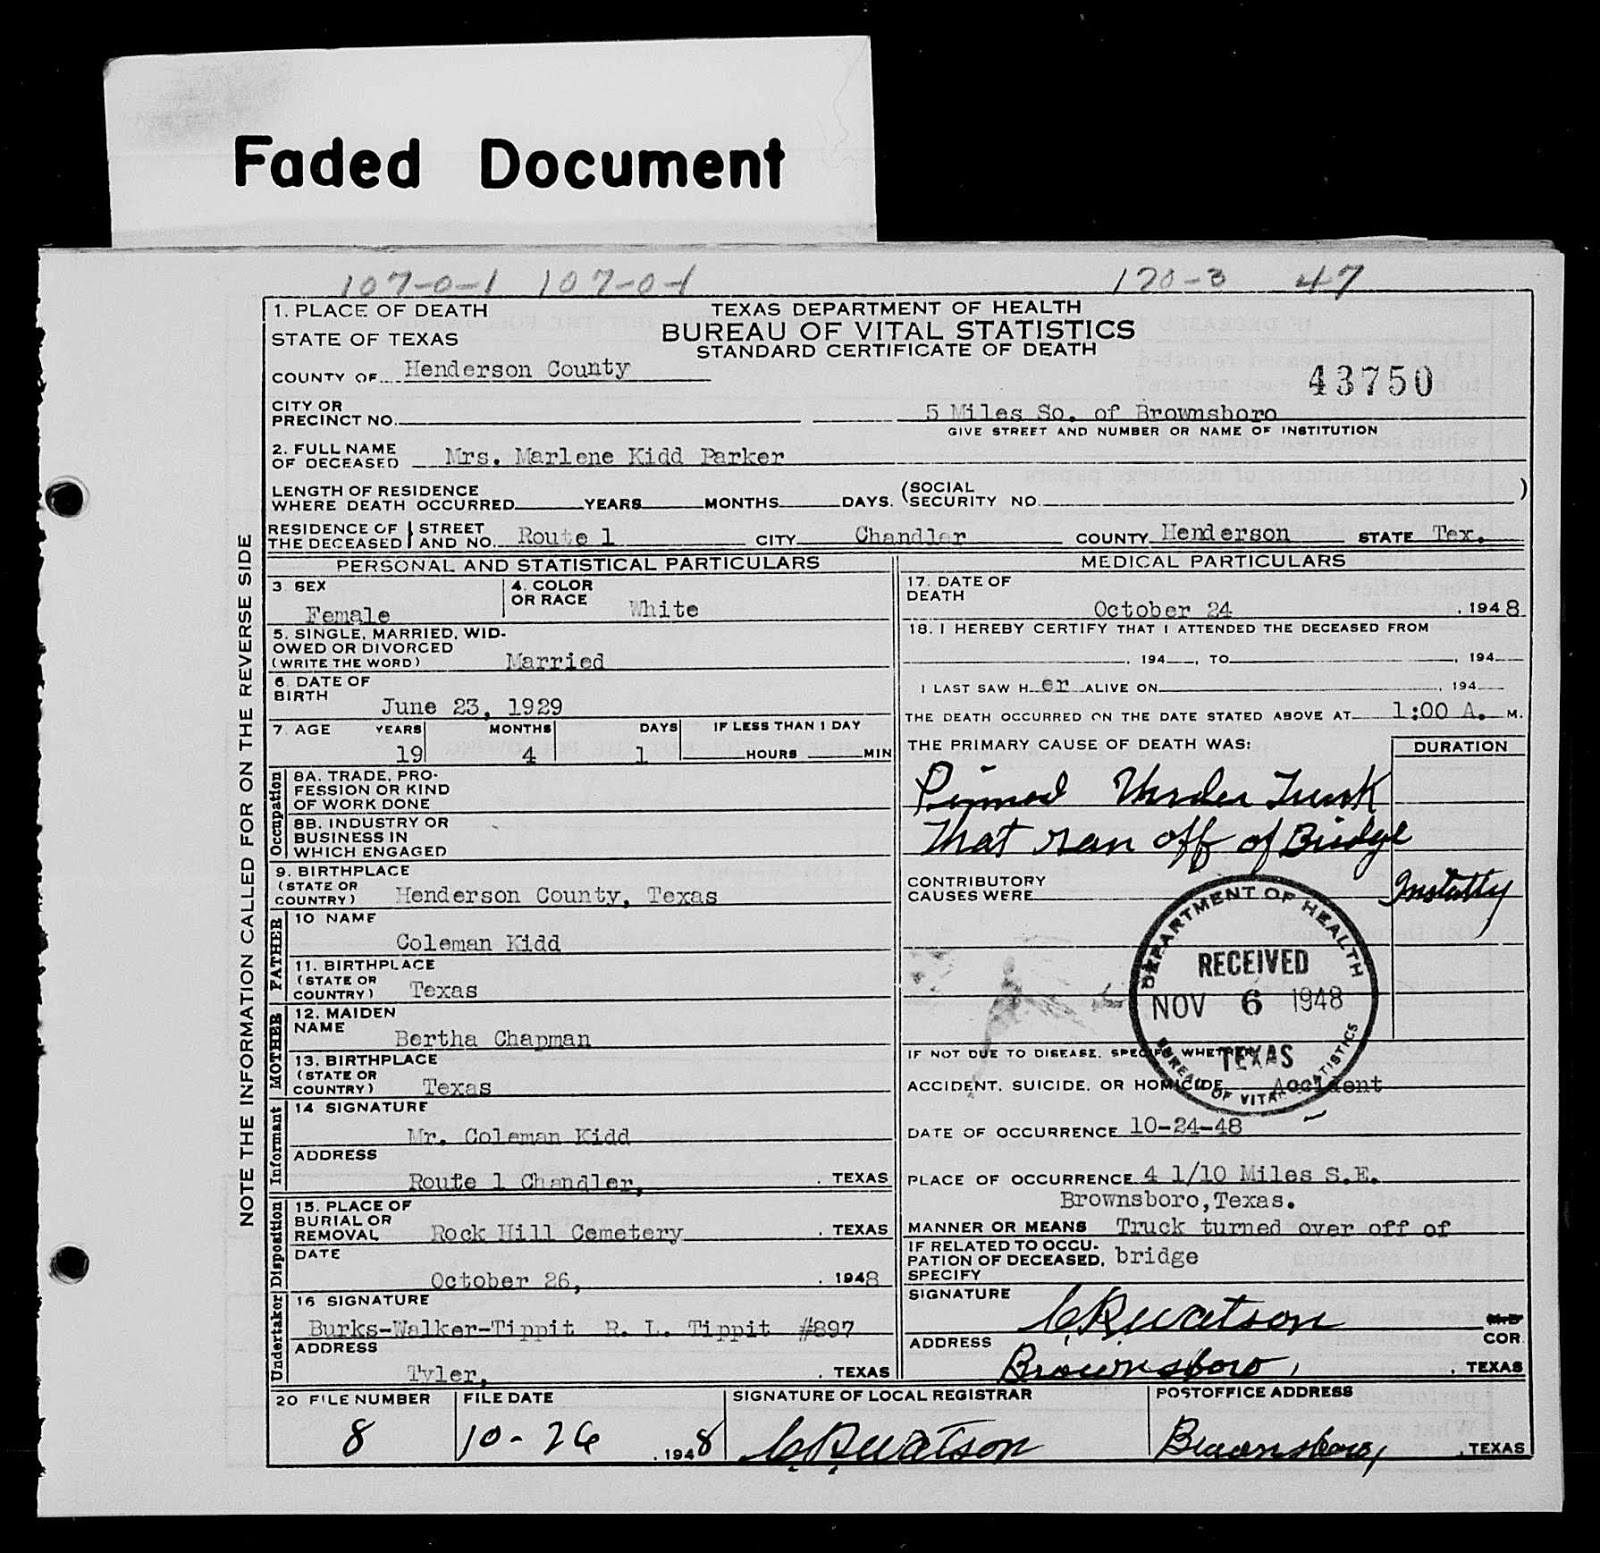 Faded Document
107-0-1 107-0-1 170-3 47
1. PLACE OF DEATH
STATE OF TEXAS
COUNTY OF Henderson County
TEXAS DEPARTMENT OF HEALTH
BUREAU OF VITAL STATISTICS
STANDARD CERTIFICATE OF DEATH
43750
CITY OR
PRECINCT NO. 5 Miles So. of Brownsboro
GIVE STREET AND NUMBER OR NAME OF INSTITUTION
2. FULL NAME
OF DECEASED Mrs. Marlene Kidd Parker
LENGTH OF RESIDENCE
WHERE DEATH OCCURRED YEARS MONTHS DAYS. (SOCIAL
SECURITY NO. )
RESIDENCE OF
THE DECEASED
STREET
AND NO. Route 1 CITY Chandler COUNTY Henderson STATE Tex.
NOTE THE INFORMATION CALLED FOR ON THE REVERSE SIDE
PERSONAL AND STATISTICAL PARTICULARS
3 SEX
Female
4. COLOR
OR RACE White
5. SINGLE, MARRIED, WID-
OWED OR DIVORCED
(WRITE THE WORD) Married
6. DATE OF
BIRTH
June 23, 1929
7. AGE YEARS MONTHS DAYS IF LESS THAN 1 DAY
19 4 1 HOURS MIN
Occupation
8A. TRADE, PRO-
FESSION OR KIND
OF WORK DONE
8B. INDUSTRY OR
BUSINESS IN
WHICH ENGAGED
9. BIRTHPLACE
(STATE OR
COUNTRY) Henderson County, Texas
FATHER
10 NAME
Coleman Kidd
11. BIRTHPLACE
(STATE OR
COUNTRY) Texas
MOTHER
12. MAIDEN
NAME
Bertha Chapman
13. BIRTHPLACE
(STATE OR
COUNTRY) Texas
Informant
14 SIGNATURE
Mr. Coleman Kidd
ADDRESS
Route 1 Chandler, . TEXAS
Disposition
15. PLACE OF
BURIAL OR
REMOVAL Rock Hill Cemetery . TEXAS
DATE
October 26, . 1948
Undertaker
16 SIGNATURE
Burks-Walker-Tippit R. L. Tippit #897
ADDRESS
Tyler, . TEXAS
MEDICAL PARTICULARS
17. DATE OF
DEATH
October 24 . 1948
18. I HEREBY CERTIFY THAT I ATTENDED THE DECEASED FROM
, 194 , TO , 194
I LAST SAW H er ALIVE ON , 194
THE DEATH OCCURRED ON THE DATE STATED ABOVE AT 1:00 A. M.
THE PRIMARY CAUSE OF DEATH WAS: DURATION
Pinned Under Truck
That ran off of Bridge
CONTRIBUTORY
CAUSES WERE
DEPARTMENT OF HEALTH
RECEIVED
NOV 6 1948
TEXAS
BUREAU OF VITAL STATISTICS
IF NOT DUE TO DISEASE, SPECIFY WHETHER
ACCIDENT, SUICIDE, OR HOMICIDE Accident
DATE OF OCCURRENCE 10-24-48
PLACE OF OCCURRENCE 4 1/10 Miles S.E.
Brownsboro, Texas.
MANNER OR MEANS Truck turned over off of
IF RELATED TO OCCU-
PATION OF DECEASED, bridge
SPECIFY
SIGNATURE C R Watson
COR.
ADDRESS Brownsboro, . TEXAS
20 FILE NUMBER FILE DATE SIGNATURE OF LOCAL REGISTRAR POSTOFFICE ADDRESS
8 10-26 . 1948 C R Watson Brownsboro, . TEXAS